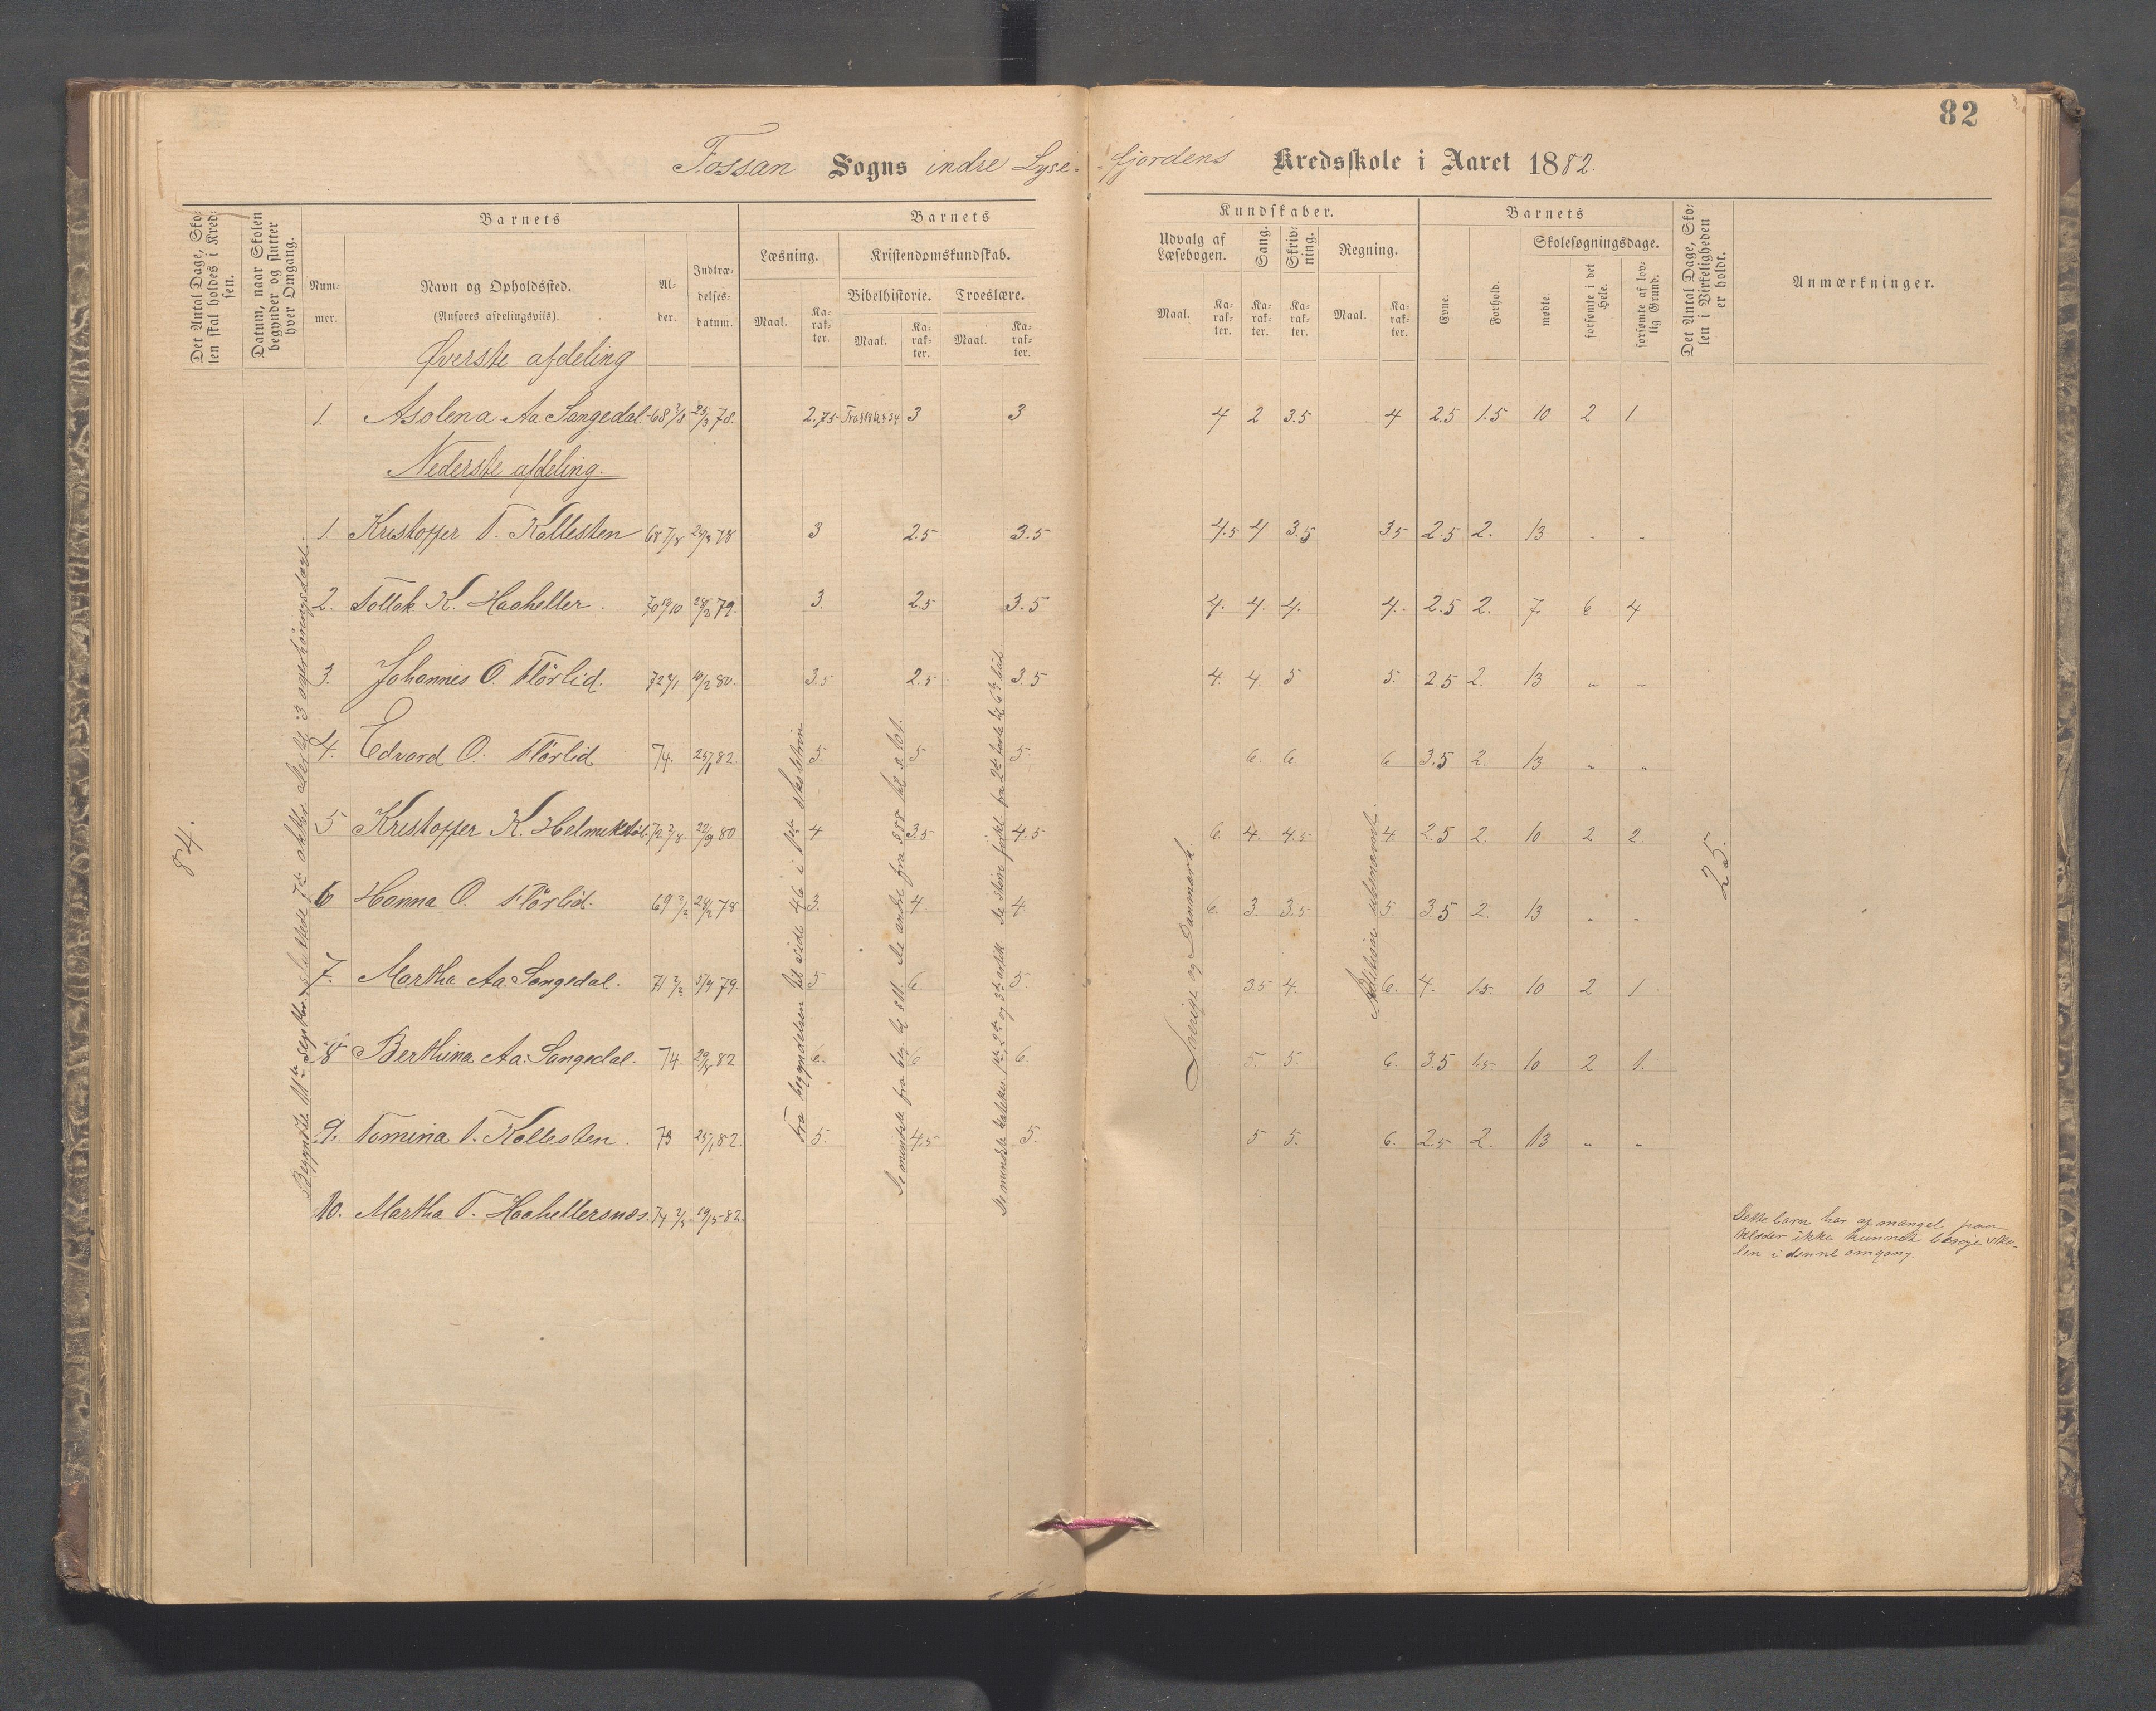 82
Fossan Sogns indre Lyse-fjordens Kredsskole i Aaret 1882.
Det Antal Dage, Skolen skal holdes i Kredsen.
Datum, naar Skolen begynder og slutter hver Omgang.
Barnets
Nummer.
Navn og Opholdssted.
(Anføres afdelingsviis).
Alder.
Indtrædelsesdatum.
Barnets
Læsning.
Maal.
Karakter.
Kristendomskundskab.
Bibelhistorie.
Maal.
Karakter.
Troeslære.
Maal.
Karakter.
Kundskaber.
Udvalg af Læsebogen.
Maal.
Karakter.
Sang.
Karakter.
Skrivning.
Karakter.
Regning.
Maal.
Karakter.
Barnets
Evne.
Forhold.
Skolesøgningsdage.
mødte.
forsømte i det Hele.
forsømte af lovlig Grund.
Det Antal Dage, Skolen i Virkeligheden er holdt.
Anmærkninger.
Øverste afdeling
1. Asolena Aa. Songedal 68 2/8 25/3 78. 2.75 3 3 4 2 3.5 4 2.5 1.5 10 2 1
Nederste afdeling.
1. Kristoffer T. Kallesten 68 7/8 29/3 78 3 2.5 3.5 4.5 4 3.5 3.5 2.5 2. 13 " "
2. Tollak K. Haaheller. 70 19/10 28/2 79. 3. 2.5 3.5 4. 4. 4. 4. 2.5 2. 7 6 4
3. Johannes O. Flörlid. 72 4/1 10/2 80. 3.5 2.5 3.5 4. 4. 5 5. 2.5 2. 13 " "
4. Edvard O. Flörlid 74. 25/1 82. 5. 5 5 6. 6. 6 3.5 2. 13 " "
5 Kristoffer K. Helmikstöl. 72 2/8. 22/9 80 4 3.5 4.5 6. 4. 4.5 4. 2.5 2. 10 2 2.
6 Hanna O. Flörlid. 69 2/2 28/2 78 3. 4. 4. 6. 3. 3.5 5. 3.5 2. 13 " "
7. Martha Aa. Songedal. 71 2/2 5/9 79. 5 6. 5. 3.5 4. 6. 4. 1.5. 10 2 1
8 Berthina Aa. Songedal. 74. 29/8 82 6. 6 6. 5. 5. 6. 3.5 1.5 10 2 1.
9. Tomina T. Kallesten. 73 25/1 82. 5. 4.5 5. 5 5. 6. 2.5 2. 13 " "
10. Martha T. Haahellersnæs. 74 2/5 19/15 82.
Dette barn har af mangel paa
klæder ikke kunnet besøje sko-
len i denne omgang.
84.
Begyndte 11te septbr. sluttede 7de oktbr.
Fra begyndelsen til side 46 i
De mindste fra beg. til § 11 De andre fra § 88 til § 101.
De mindste 1ste 2de og 3die artik De större
Sverige og Danmark.
25.